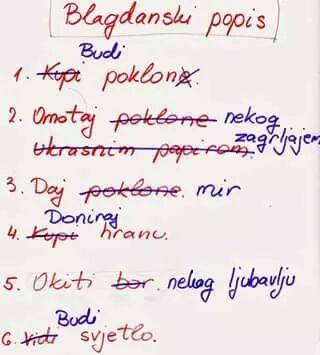 Blagdanski popis
Budi
1. Kupi poklone
2. Omotaj poklone nekog
ukrasnim papirom. zagrljajem
3. Daj poklone. mir
Doniraj
4. Kupi hranu.
5. Okiti bor. nekog ljubavlju
Budi
6. Vidi svjetlo.